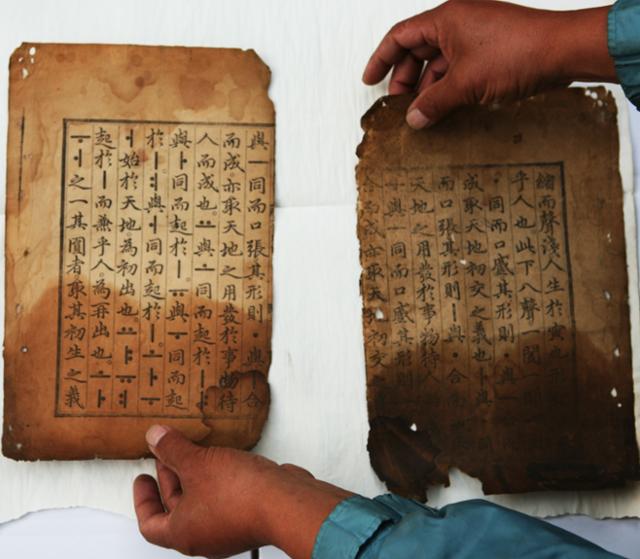 縮而聲淺人生於寅也形
乎人也此下八聲一闔一
·同而口蹙其形則·與
成取天地初交之義也ㅏ與
而口張其形則ㅣ與·合
天地之用發於事物待人
與ㅡ同而口蹙其形則
合而成亦取天地初交之
與ㅡ同而口張其形則·與ㅣ合
而成亦取天地之用發於事物待
人而成也ㅛ與ㅗ同而起於ㅣㅑ
與ㅏ同而起於ㅣ。ㅠ與ㅜ同而起
於ㅣㅕ與ㅓ同而起於ㅣ。ㅗㅏㅜ
ㅓ始於天地。為初出也。ㅛㅑㅠㅕ
起於ㅣ而兼乎人。為再出也。ㅗㅏ
ㅜㅓ之一其圓者。取其初生之義